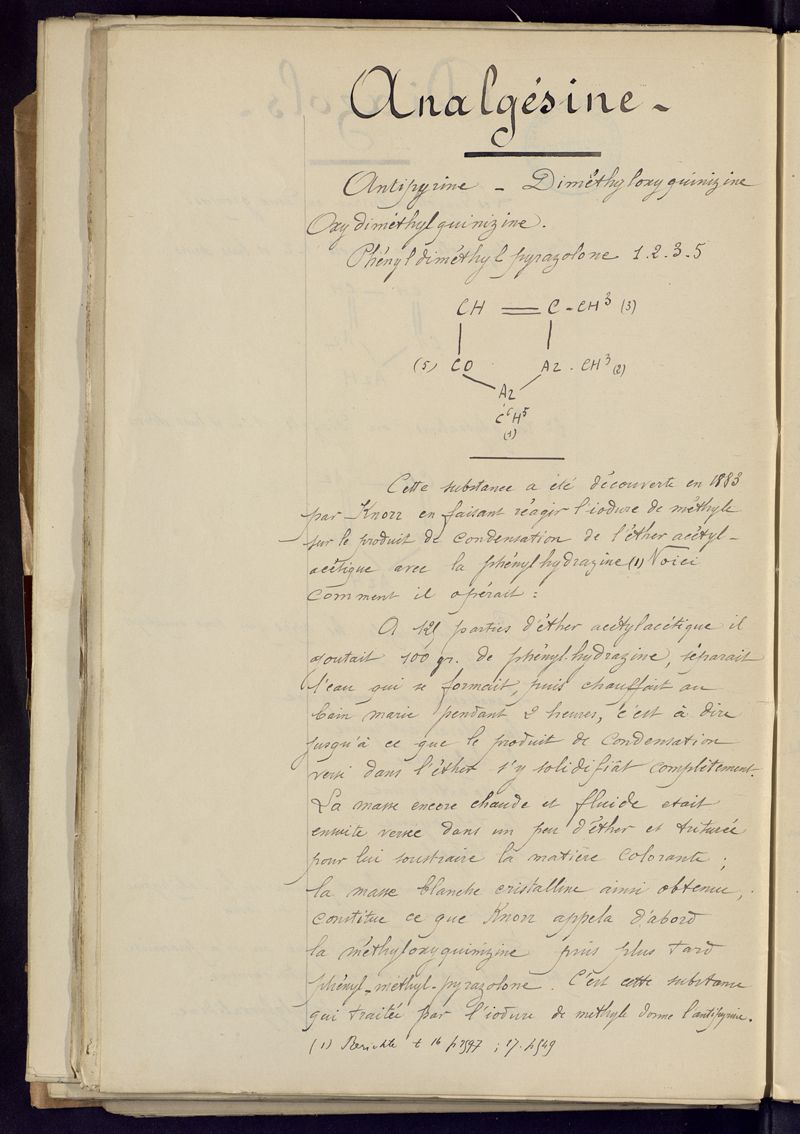 Analgésine -
Antipyrine - Diméthyloxyquinizine
Oxydiméthylquinizine.
Phényldiméthylpyrazolone 1.2.3.5
CH = C - CH³ (3)
(5) CO Az . CH³ (2)
Az
C⁶H⁵
(1)
Cette substance a été découverte en 1883
par Knorr en faisant réagir l'iodure de méthyle
sur le produit de condensation de l'éther acétyl-
acétique avec la phénylhydrazine (1) Voici
comment il opérait :
A 125 parties d'éther acétylacétique il
ajoutait 100 gr. de phénylhydrazine, séparait
l'eau qui se formait, puis chauffait au
bain marie pendant 2 heures, c'est à dire
jusqu'à ce que le produit de condensation
versé dans l'éther s'y solidifiât complètement.
La masse encore chaude et fluide etait
ensuite versée dans un peu d'éther et triturée
pour lui soustraire la matière colorante ;
la masse blanche cristalline ainsi obtenue,
constitue ce que Knorr appela d'abord
la méthyloxyquinizine puis plus tard
phényl-méthyl-pyrazolone. C'est cette substance
qui traitée par l'iodure de methyle donne l'antipyrine.
(1) Berichte t 16 p 2597 ; 17. p 549